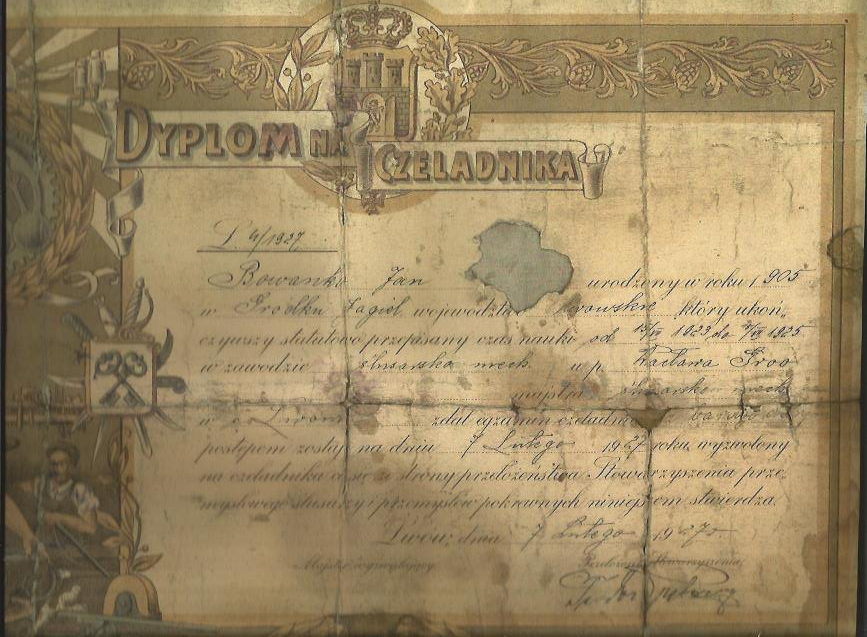 DYPLOM NA CZELADNIKA
L. 4/1927
Bowanko Jan urodzony w roku 1905
w Gródku Jagiel województwo lwowskie który ukoń-
czywszy statutowo przepisany czas nauki od 1923 do 1925
w zawodzie ślusarsko mech. u p. Wacława
majstra ślusarsko mech
w Lwowie zdał egzamin czeladniczy
postępem został na dniu 7 Lutego 1927 roku, wyzwolony
na czeladnika co się ze strony przełożeństwa Stowarzyszenia prze-
mysłowego ślusarzy i przemysłów pokrewnych niniejszem stwierdza.
Lwów, dnia 7 Lutego 1927 r
Majster egzaminujący Przełożony Stowarzyszenia